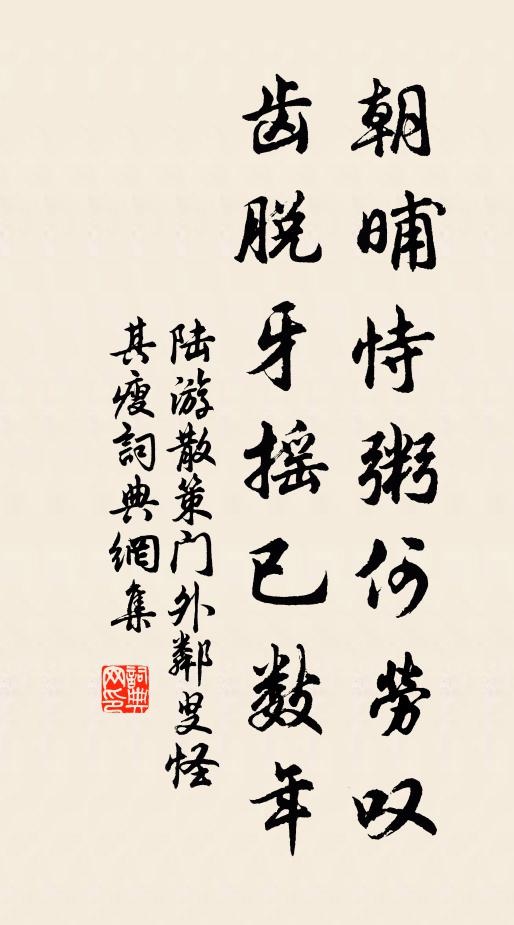 朝晡恃粥何勞叹
齿脱牙摇已数年
陆游散策门外鄰叟怪
其瘦詞典網集
詞典网印